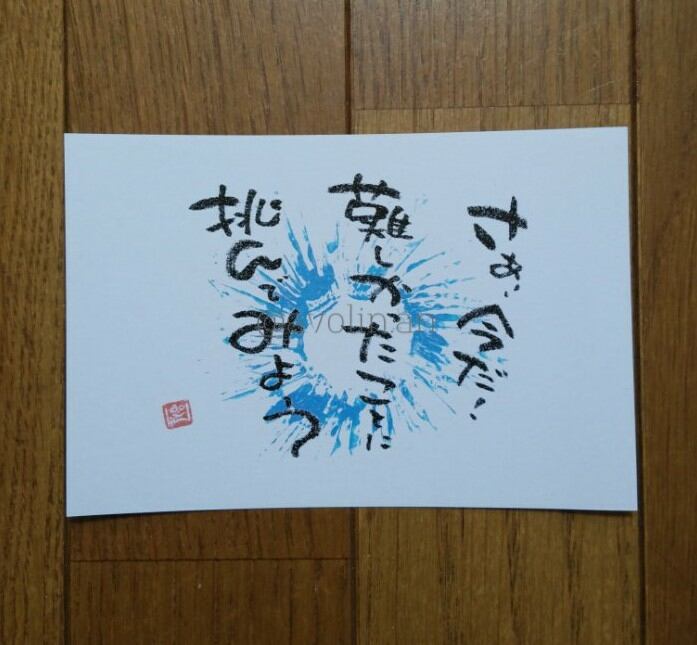 さあ、今だ!
難しかったことに
挑んでみよう